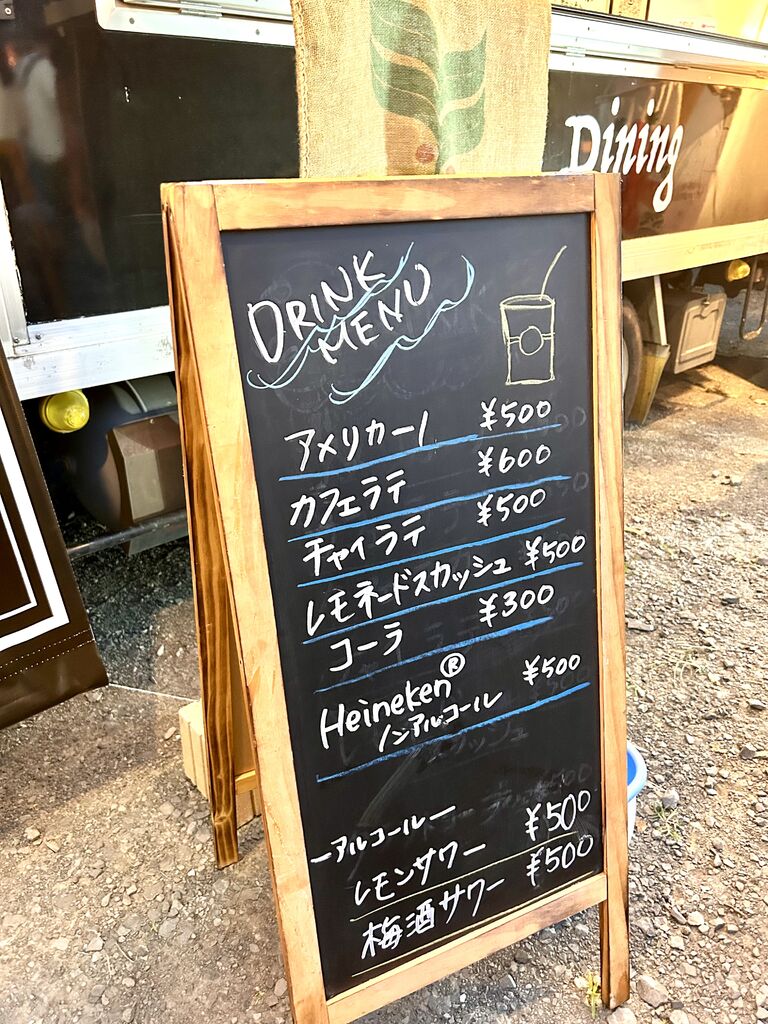 Dining
DRINK
MENU
アメリカーノ ¥500
カフェラテ ¥600
チャイラテ ¥500
レモネードスカッシュ ¥500
コーラ ¥300
Heineken® ¥500
ノンアルコール
ーアルコールー
レモンサワー ¥500
梅酒サワー ¥500